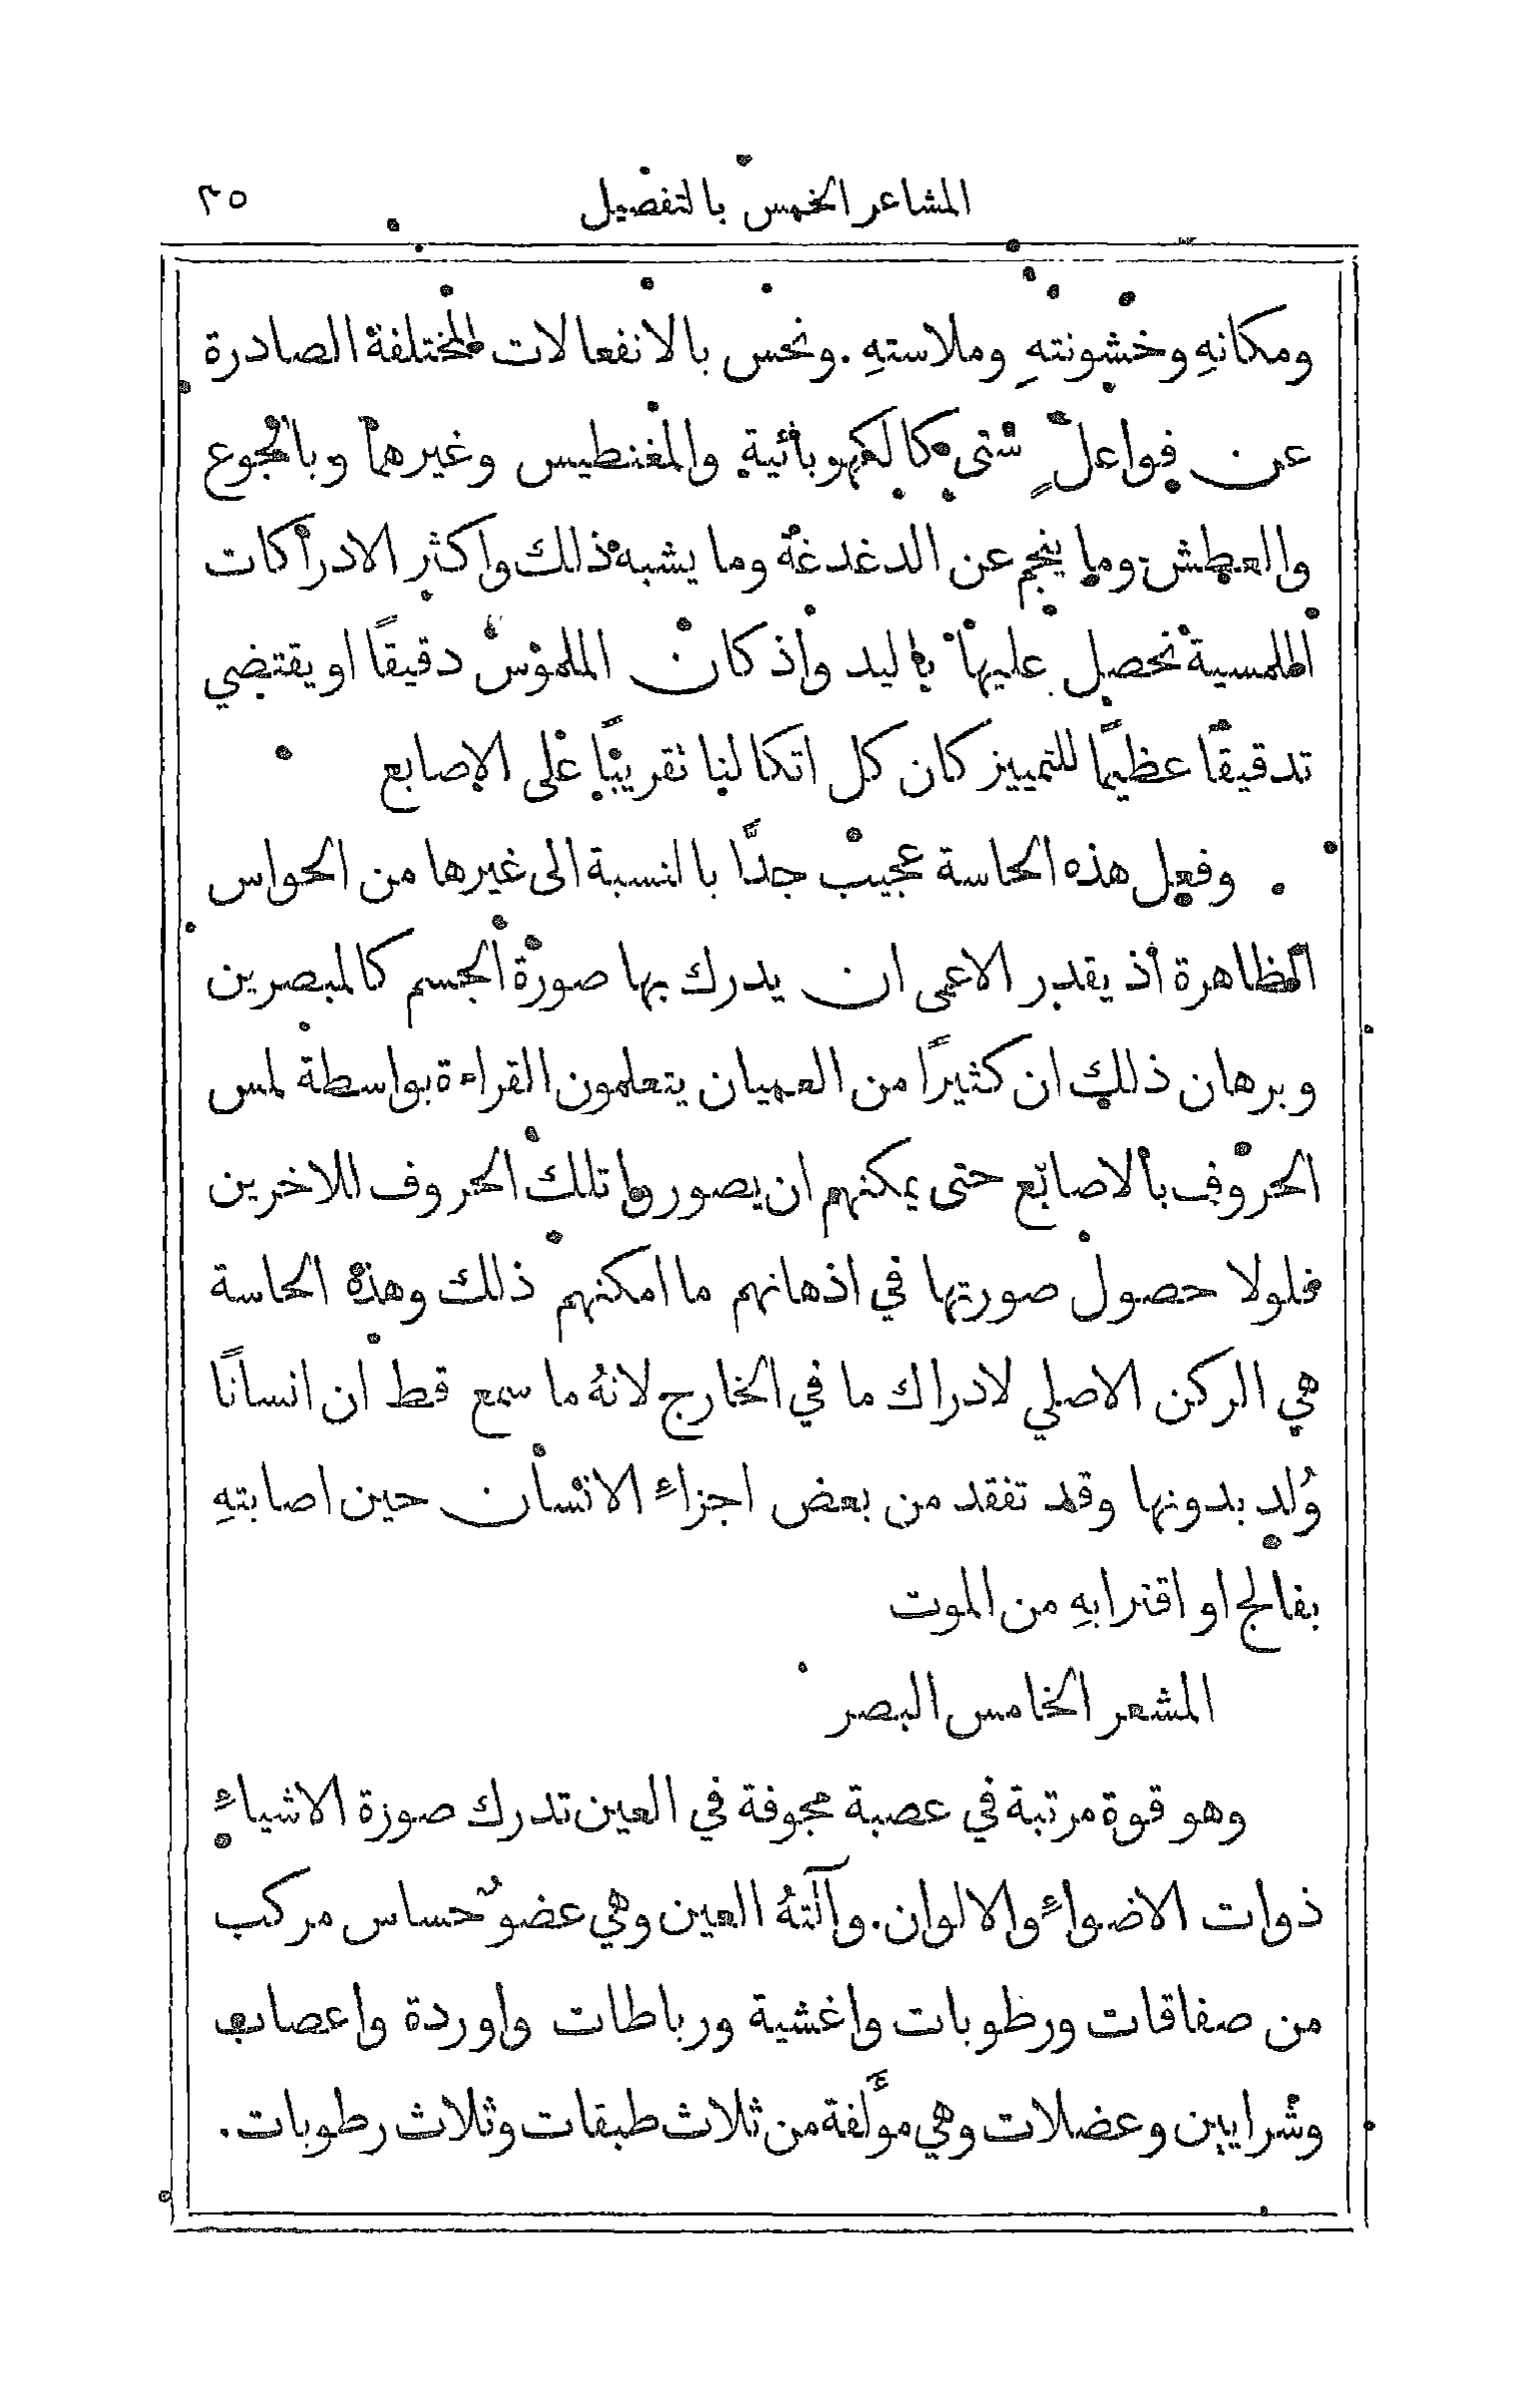 المشاعر الخمس بالتفصيل ٢٥
ومكانهِ وخشونتهِ وملاستهِ. ونحس بالانفعالات المختلفة الصادرة
عن فواعلٍ شتى كالكهربائية والمغنطيس وغيرها وبالجوع
والعطش وما ينجم عن الدغدغة وما يشبه ذلك واكثر الادراكات
الملمسية نحصل عليها باليد واذ كان الملموس دقيقًا او يقتضي
تدقيقًا عظيمًا للتمييز كان كل اتكالنا تقريبًا على الاصابع
وفعل هذه الحاسة عجيب جدًا بالنسبة الى غيرها من الحواس
الظاهرة اذ يقدر الاعمى ان يدرك بها صورة الجسم كالمبصرين
وبرهان ذلك ان كثيرًا من العميان يتعلمون القراءة بواسطة لمس
الحروف بالاصابع حتى يمكنهم ان يصوروا تلك الحروف للاخرين
فلولا حصول صورتها في اذهانهم ما امكنهم ذلك وهذه الحاسة
هي الركن الاصلي لادراك ما في الخارج لانهُ ما سمع قط ان انسانًا
وُلد بدونها وقد تفقد من بعض اجزاء الانسان حين اصابتهِ
بفالج او اقترابهِ من الموت
المشعر الخامس البصر
وهو قوة مرتبة في عصبة مجوفة في العين تدرك صورة الاشياء
ذوات الاضواء والالوان. وآلتهُ العين وهي عضوٌ حساس مركب
من صفاقات ورطوبات واغشية ورباطات واوردة واعصاب
وشرايين وعضلات وهي مؤَلفة من ثلاث طبقات وثلاث رطوبات.